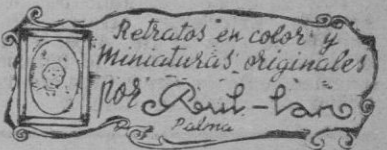 Retratos en color y
Miniaturas originales
por Roul-lan
Palma